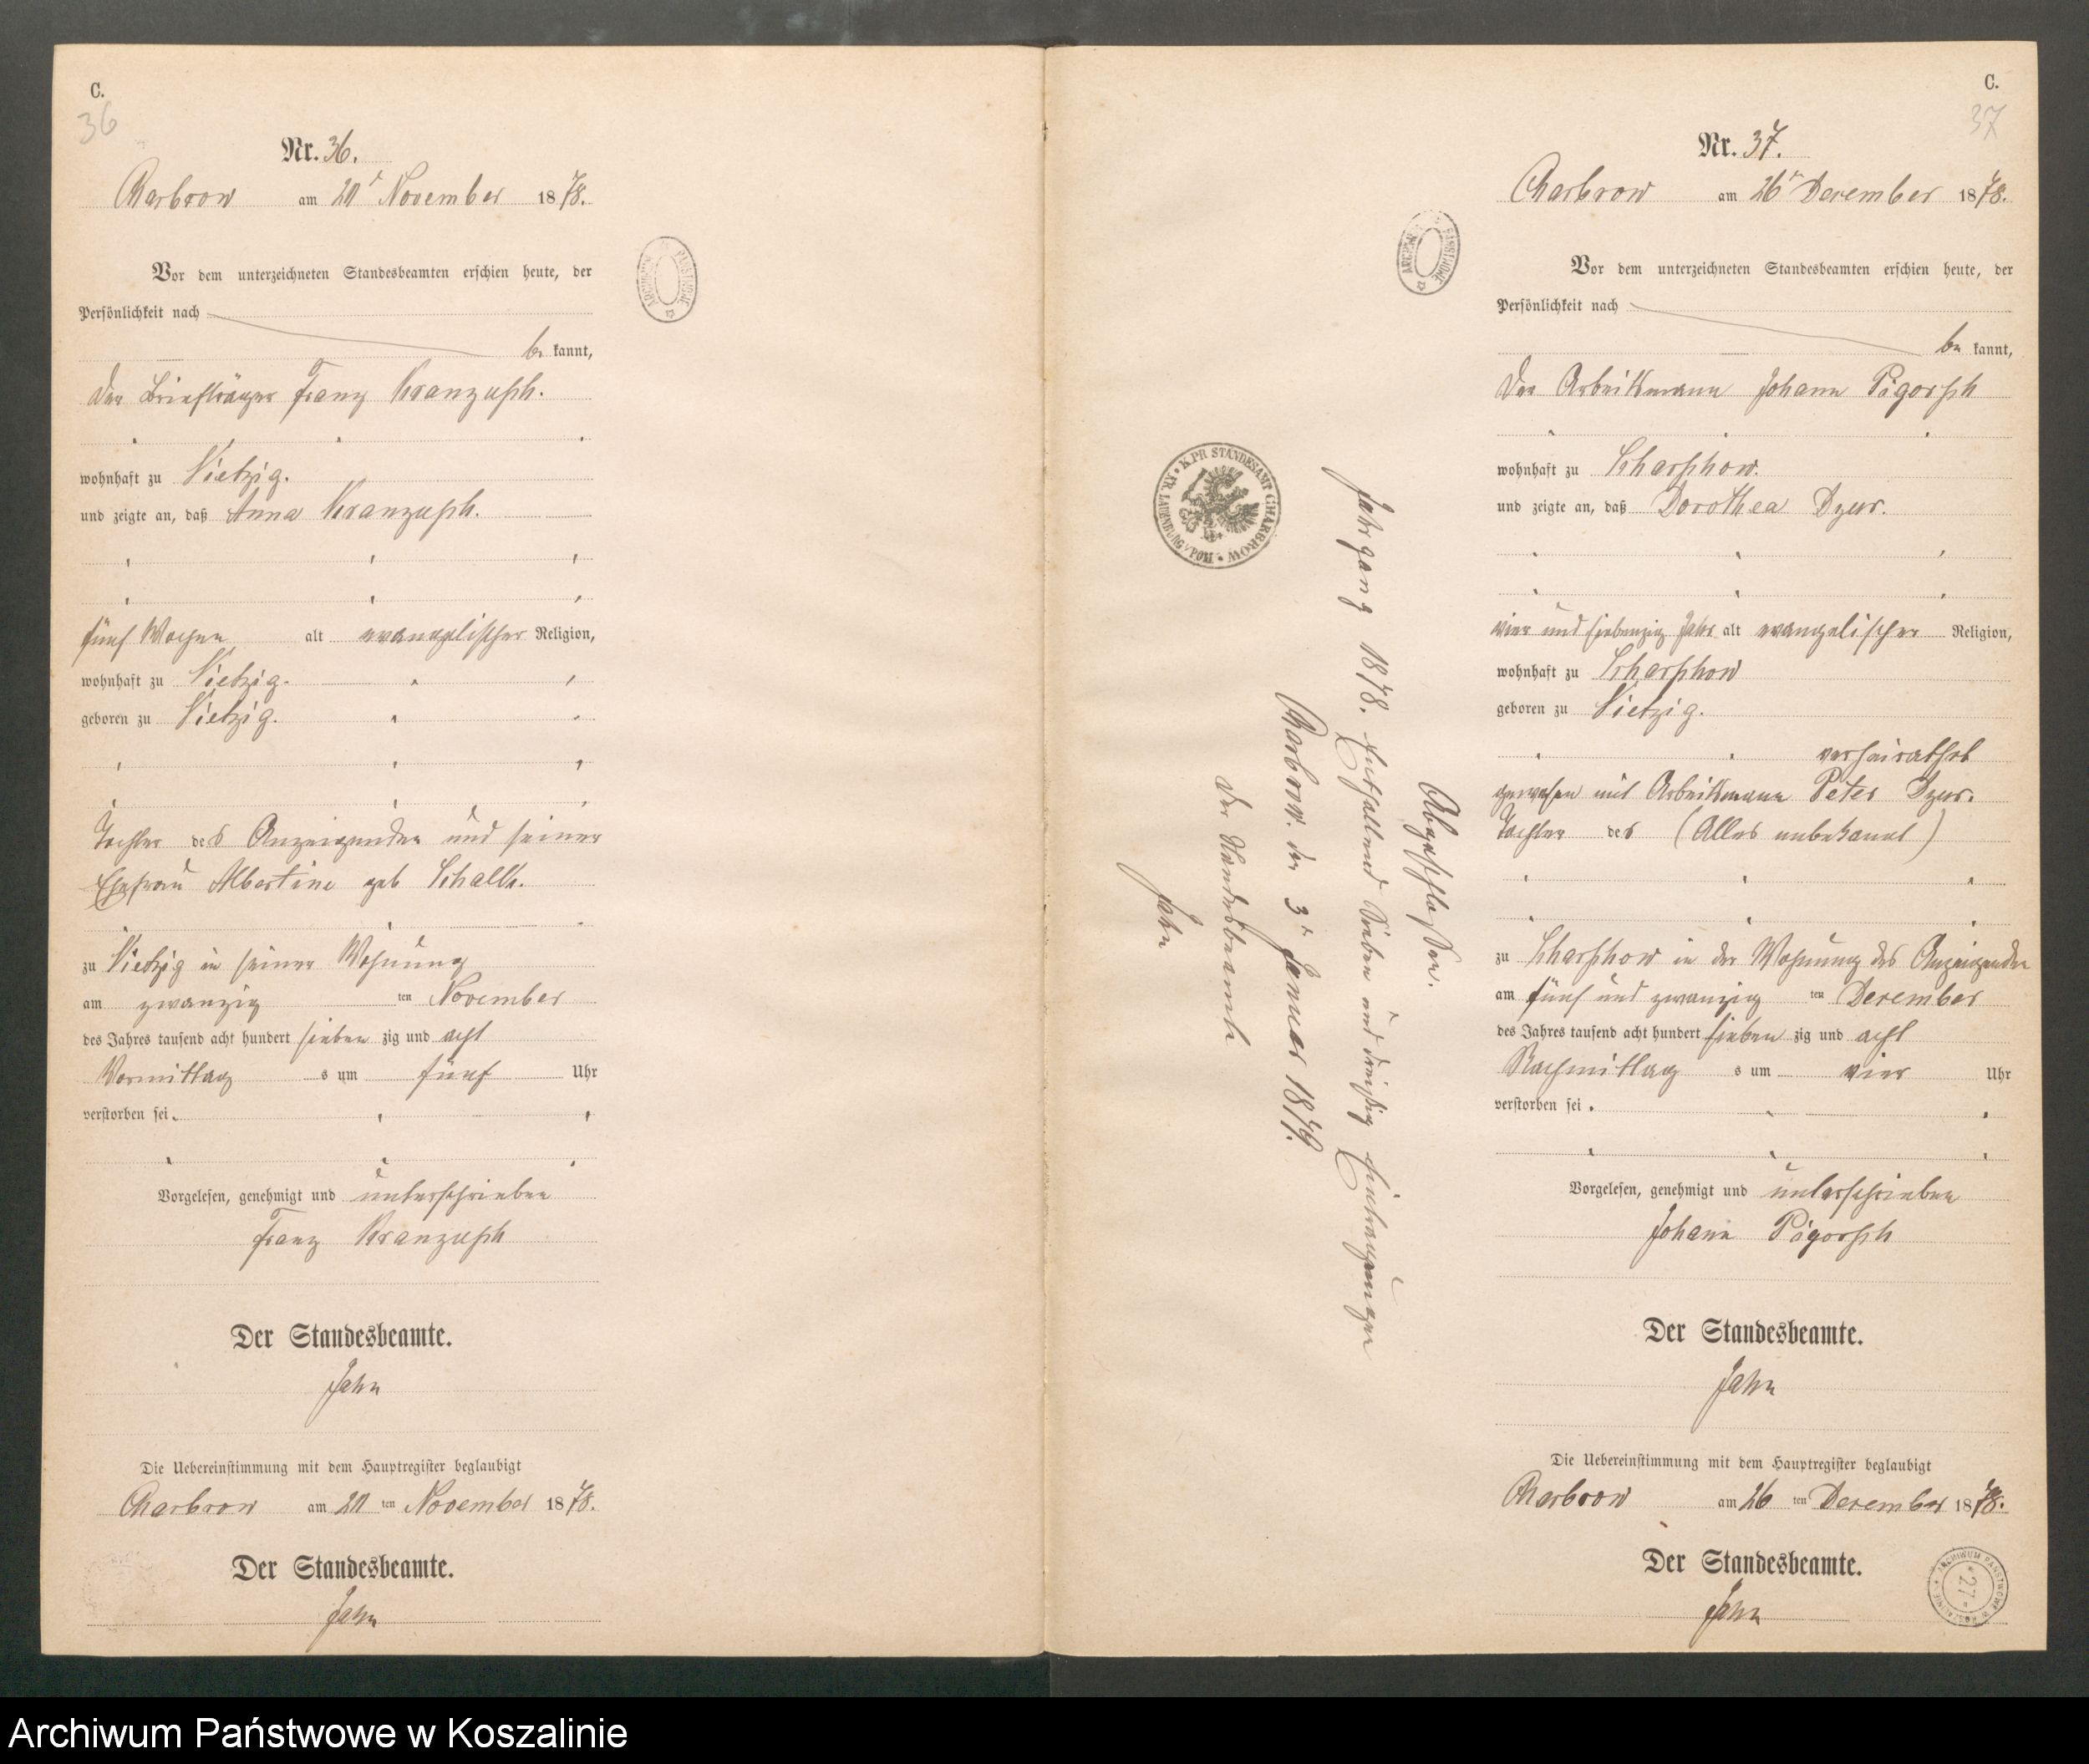 C.
36
Nr. 36.
Charbrow am 20t November 1878.
Vor dem unterzeichneten Standesbeamten erschien heute, der
Persönlichkeit nach
be kannt,
der Briefträger Franz Kranzusch.
wohnhaft zu Vietzig.
und zeigte an, daß Anna Kranzusch.
fünf Wochen alt evangelischer Religion,
wohnhaft zu Vietzig.
geboren zu Vietzig.
Tochter des Anzeigenden und seiner
Ehefrau Albertine geb Schalk.
zu Vietzig in seiner Wohnung
am zwanzig ten November
des Jahres tausend acht hundert sieben zig und acht
Vormittag s um fünf Uhr
verstorben sei.
Vorgelesen, genehmigt und unterschrieben
Franz Kranzusch
Der Standesbeamte.
Jahn
Die Uebereinstimmung mit dem Hauptregister beglaubigt
Charbrow am 20 ten November 1878.
Der Standesbeamte.
Jahn
C.
37
Nr. 37.
Charbrow am 26t December 1878.
Vor dem unterzeichneten Standesbeamten erschien heute, der
Persönlichkeit nach
be kannt,
der Arbeitsmann Johann Pigorsch
wohnhaft zu Scharschow.
und zeigte an, daß Dorothea
vier und siebenzig Jahr alt evangelischer Religion,
wohnhaft zu Scharschow
geboren zu Vietzig.
verheirathet
gewesen mit Arbeitsmann Peter
Tochter des (Alles unbekannt)
zu Scharschow in der Wohnung des Anzeigenden
am fünf und zwanzig ten December
des Jahres tausend acht hundert sieben zig und acht
Nachmittag s um vier Uhr
verstorben sei.
Vorgelesen, genehmigt und unterschrieben
Johann Pigorsch
Der Standesbeamte.
Jahn
Die Uebereinstimmung mit dem Hauptregister beglaubigt
Charbrow am 26 ten December 1878.
Der Standesbeamte.
Jahn
Abgeschlossen.
Jahrgang 1878. Enthaltend Sieben und dreißig Eintragungen
Charbrow. den 3t Januar 1879.
Der Standesbeamte
Jahn
K. PR STANDESAMT CHARBROW • KR. LAUENBURG / POM •
ARCHIWUM PAŃSTWOWE
27
Archiwum Państwowe w Koszalinie